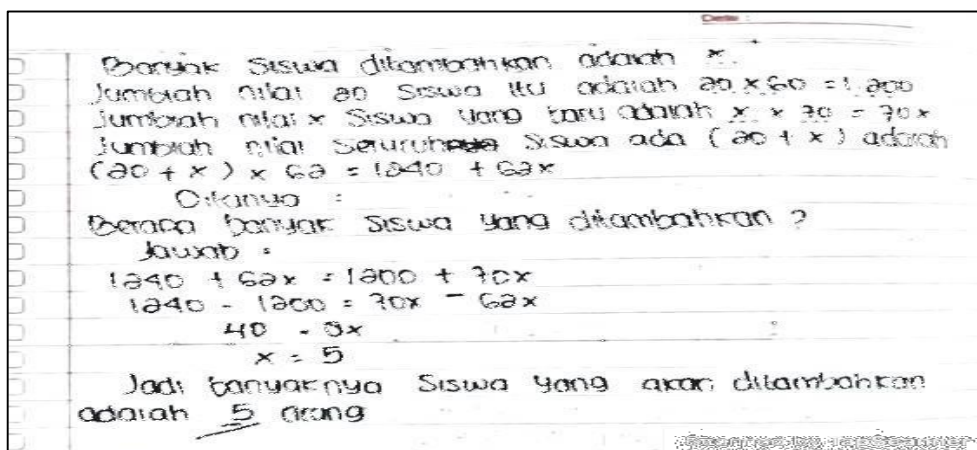 Date :
Banyak siswa ditambahkan adalah x.
Jumlah nilai 20 siswa itu adalah 20 x 60 = 1.200
Jumlah nilai x siswa yang baru adalah x x 70 = 70x
Jumlah nilai seluruh siswa ada (20 + x) adalah
(20 + x) x 62 = 1240 + 62x
Ditanya :
Berapa banyak siswa yang ditambahkan ?
Jawab :
1240 + 62x = 1200 + 70x
1240 - 1200 = 70x - 62x
40 = 8x
x = 5
Jadi banyaknya siswa yang akan ditambahkan
adalah 5 orang